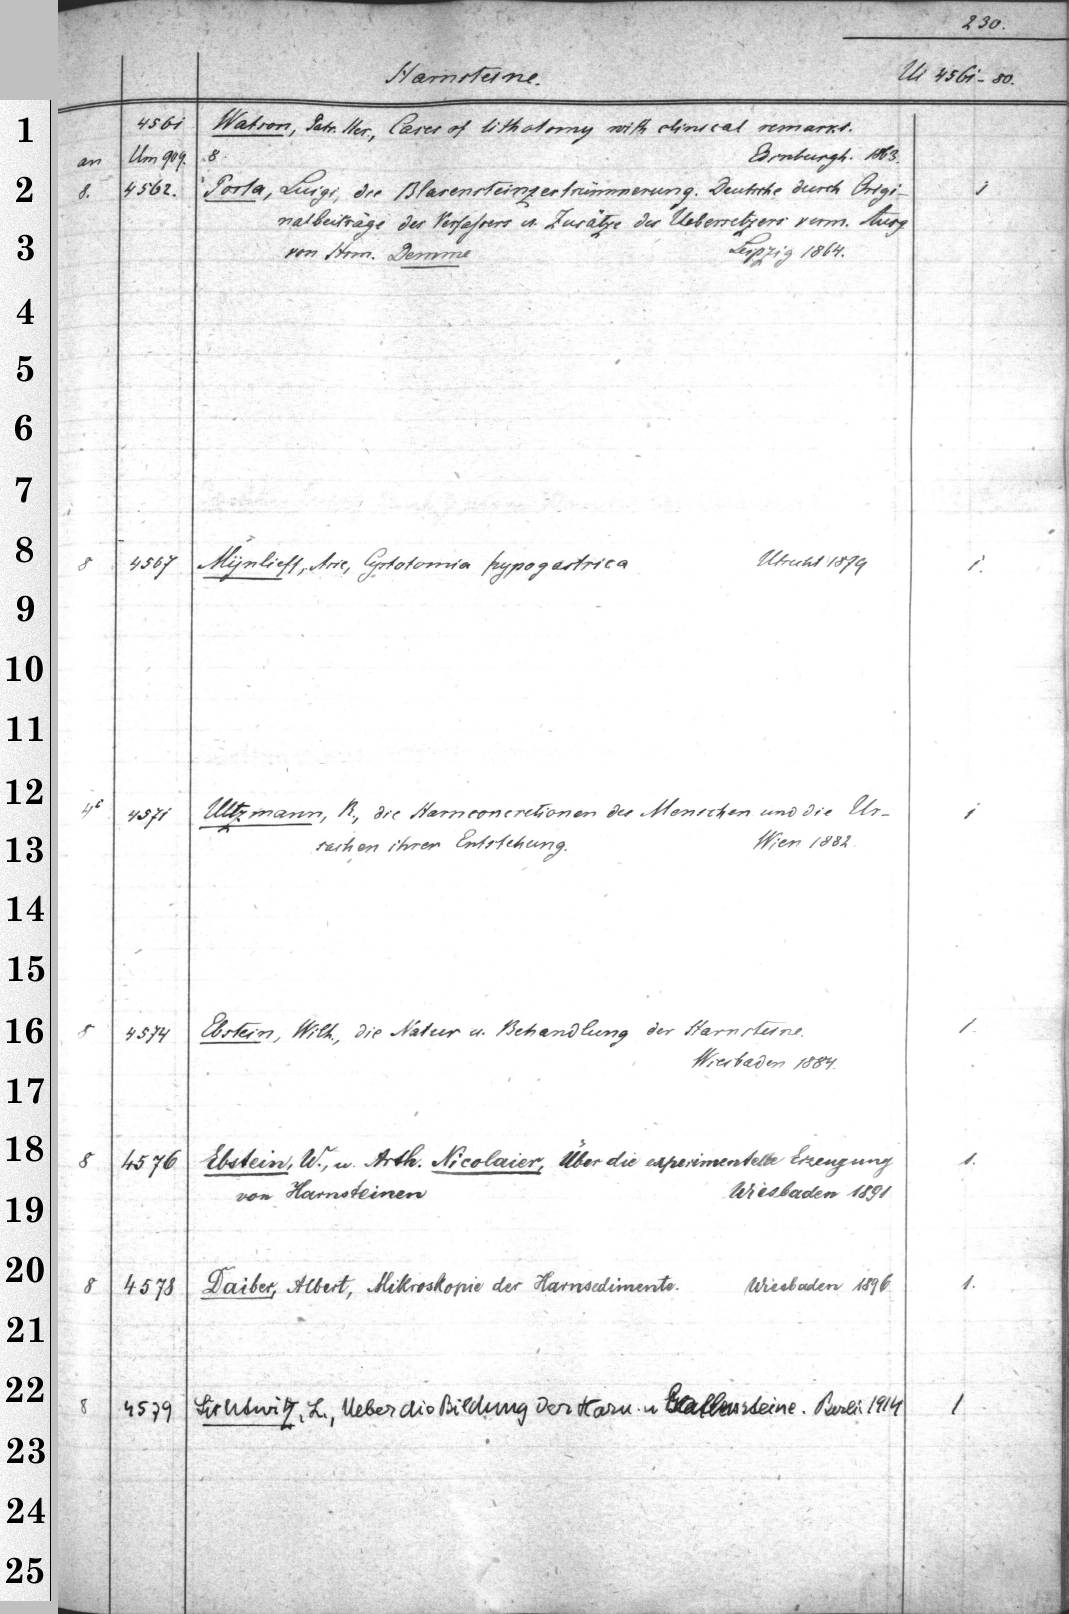 230.
Harnsteine. Ul 4561-80.
1 4561 Watson, Patr. Her., Cases of lithotomy with clinical remarks.
an Um 909. 8. Edinburgh. 1863.
2 8. 4562. Porta, Luigi, die Blasensteinzertrümmerung. Deutsche durch Origi-
nalbeiträge des Verfassers u. Zusätze des Uebersetzers verm. Ausg
3 von Hrm. Demme Leipzig 1864.
4
5
6
7
8 8 4567 Mijnlieff, Arie, Cystotomia hypogastrica Utrecht 1879 1.
9
10
11
12 4° 4571 Ultzmann, R., die Harnconcretionen des Menschen und die Ur- 1
13 sachen ihrer Entstehung. Wien 1882.
14
15
16 8 4574 Ebstein, Wilh., die Natur u. Behandlung der Harnsteine. 1.
Wiesbaden 1884.
17
18 8 4576 Ebstein, W., u. Arth. Nicolaier, Über die experimentelle Erzeugung 1.
19 von Harnsteinen Wiesbaden 1891
20 8 4578 Daiber, Albert, Mikroskopie der Harnsedimente. Wiesbaden 1896 1.
21
22 8 4579 Lichtwitz, L., Ueber die Bildung der Harn- u Gallensteine. Berlin 1914 1
23
24
25